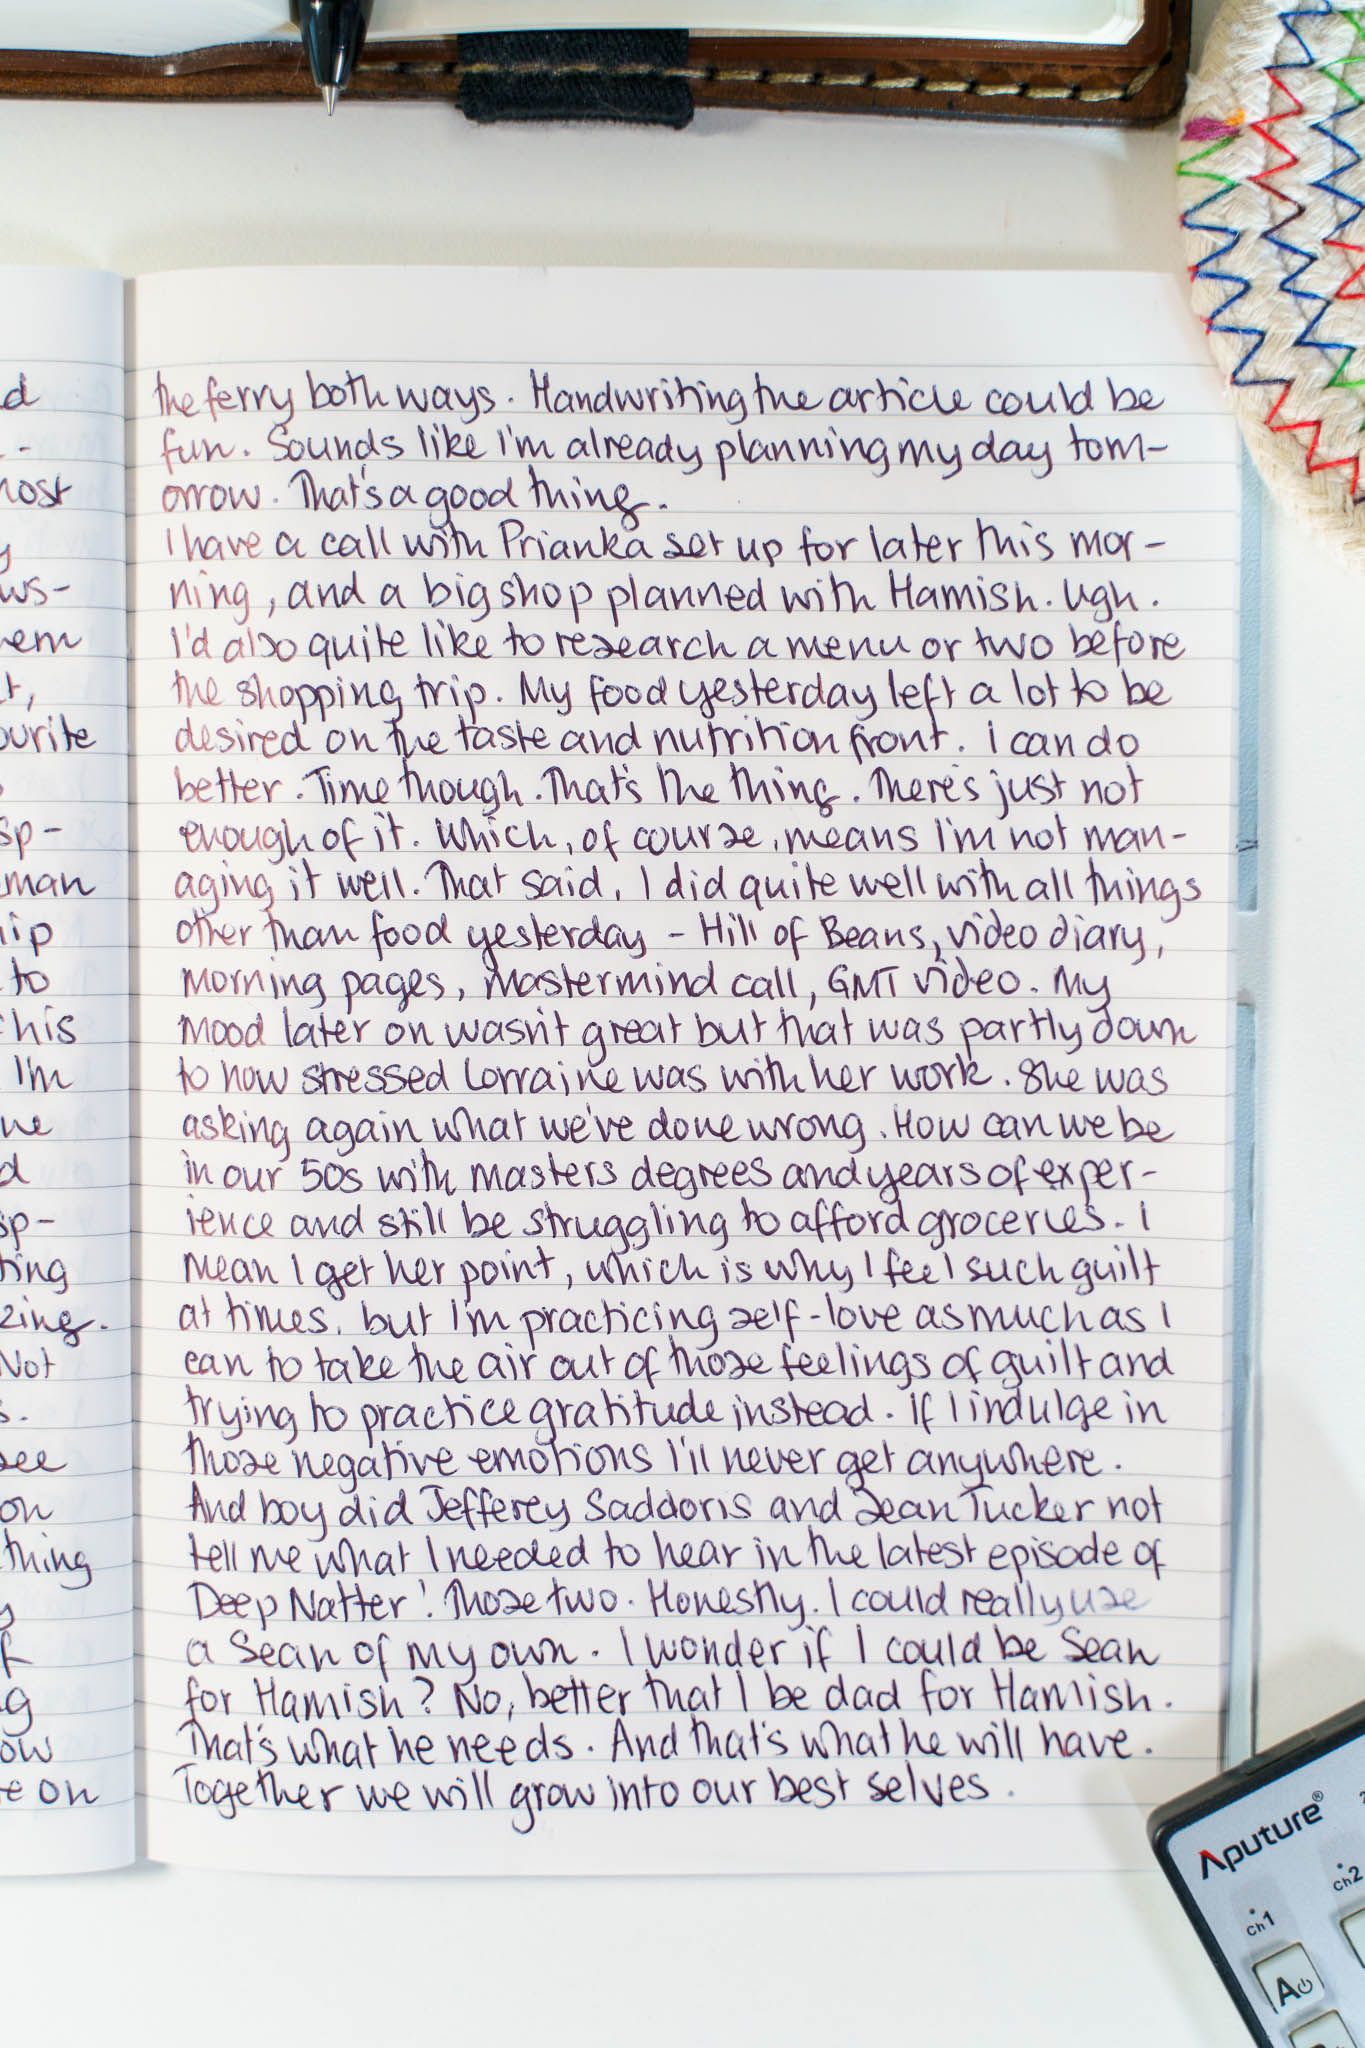 d
-
nost
y
ws-
hem
t,
ourite
sp-
man
hip
to
this
I'm
ne
d
sp-
ting
zing.
Not
s.
see
on
thing
y
f
ng
ow
e on
the ferry both ways. Handwriting the article could be
fun. Sounds like I'm already planning my day tom-
orrow. That's a good thing.
I have a call with Prianka set up for later this mor-
ning, and a big shop planned with Hamish. Ugh.
I'd also quite like to research a menu or two before
the shopping trip. My food yesterday left a lot to be
desired on the taste and nutrition front. I can do
better. Time though. That's the thing. There's just not
enough of it. Which, of course, means I'm not man-
aging it well. That said, I did quite well with all things
other than food yesterday - Hill of Beans, video diary,
morning pages, mastermind call, GMT video. My
mood later on wasn't great but that was partly down
to how stressed Lorraine was with her work. She was
asking again what we've done wrong. How can we be
in our 50s with masters degrees and years of exper-
ience and still be struggling to afford groceries. I
mean I get her point, which is why I feel such guilt
at times, but I'm practicing self-love as much as I
can to take the air out of those feelings of guilt and
trying to practice gratitude instead. If I indulge in
those negative emotions I'll never get anywhere.
And boy did Jefferey Saddoris and Sean Tucker not
tell me what I needed to hear in the latest episode of
Deep Natter! Those two. Honestly. I could really use
a Sean of my own. I wonder if I could be Sean
for Hamish? No, better that I be dad for Hamish.
That's what he needs. And that's what he will have.
Together we will grow into our best selves.
Aputure®
ch1
ch2
A